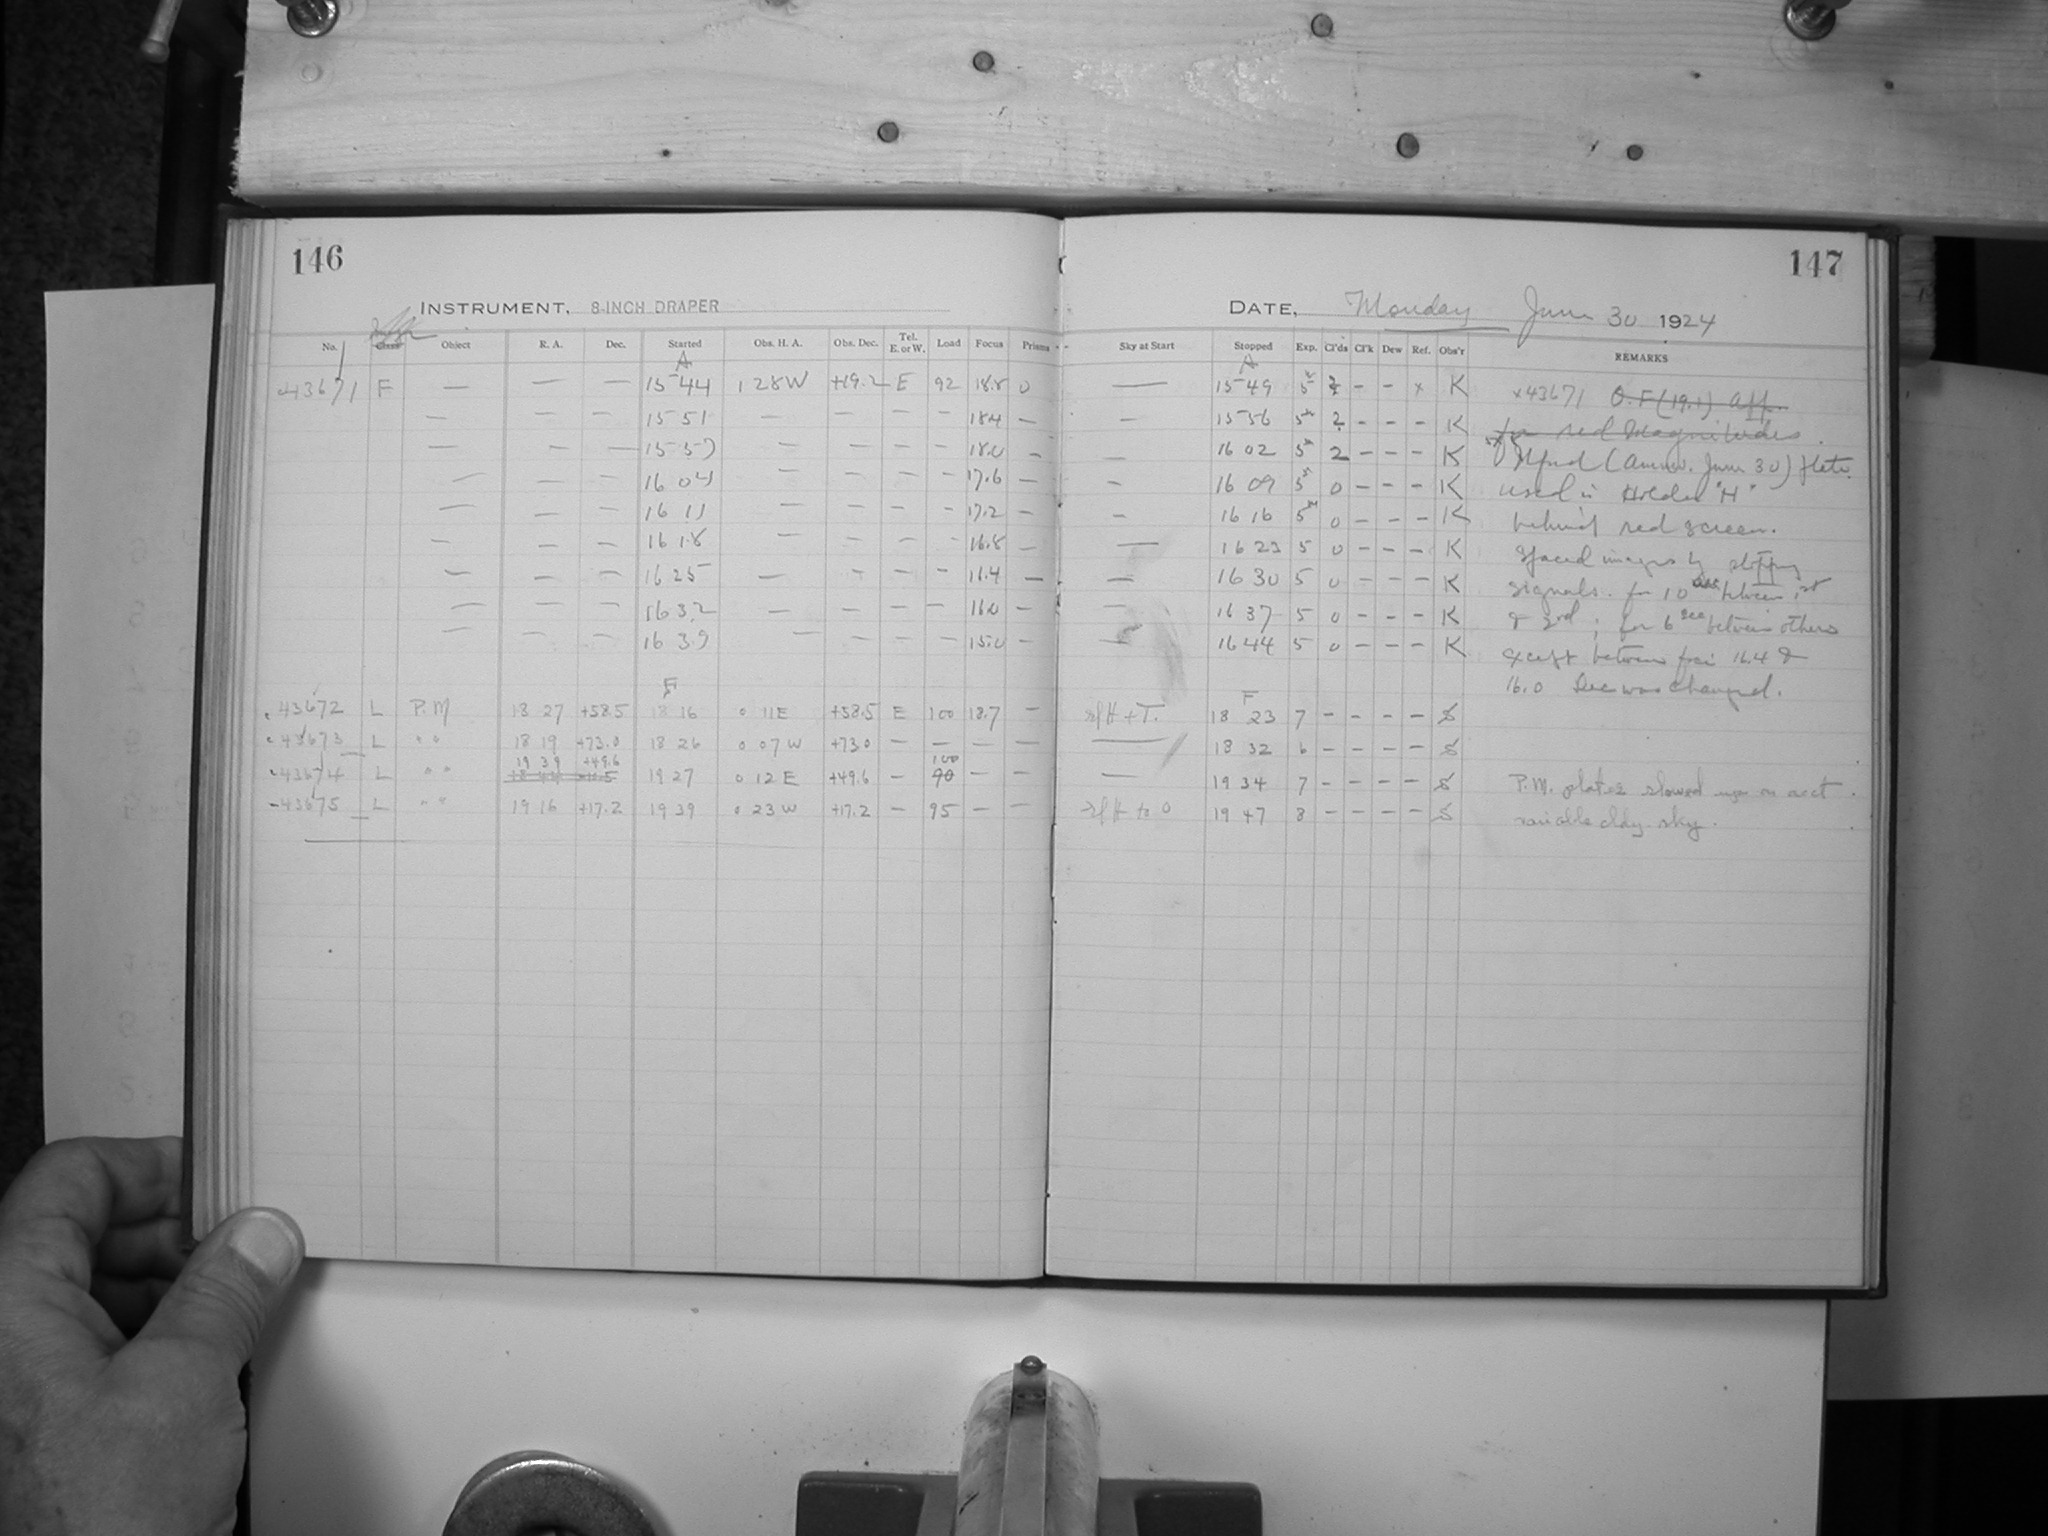 146
147
INSTRUMENT, 8-INCH DRAPER
DATE, Monday June 30 1924
No. Class Object R. A. Dec. Started Obs. H. A. Obs. Dec. Tel. E. or W. Load Focus Prisms Sky at Start Stopped Exp. Cl'ds Cl'k Dew Ref. Obs'r REMARKS
A A
43671 F — — — 15 44 1 28 W +19.2 E 92 18.8 0 — 15 49 5 2 - - x K x43671 O.F (19.1) aff.
— — 15 51 — — — — 18.4 — — 15 56 5m 2 - - - K for red Magnitudes.
— — — 15 57 — — — — 18.0 — — 16 02 5m 2 - - - K Ilford (June 30) plate
— — — 16 04 — — — — 17.6 — — 16 09 5m 0 - - - K used in Holder "H"
— — — 16 11 — — — — 17.2 — — 16 16 5m 0 - - - K behind red screen.
— — — 16 18 — — — — 16.8 — — 16 23 5 0 - - - K Spaced images by stopping
— — — 16 25 — — — — 16.4 — — 16 30 5 0 - - - K signals. for 10 sec between 1st
— — — 16 32 — — — — 16.0 — — 16 37 5 0 - - - K & 2nd; for 6 sec between others
— — — 16 39 — — — — 15.0 — — 16 44 5 0 - - - K except between foci 16.4 &
16.0 Dec was changed.
F F
43672 L P.M 18 27 +58.5 18 16 0 11 E +58.5 E 100 18.7 — + T. 18 23 7 - - - - S
43673 L " " 18 19 +73.0 18 26 0 07 W +73.0 — — — — — 18 32 6 - - - - S
19 39 +49.6 100
43674 L " " 19 27 0 12 E +49.6 — 90 — — — 19 34 7 - - - - S P.M. plates slowed up on acct.
43675 L " " 19 16 +17.2 19 39 0 23 W +17.2 — 95 — — to 0 19 47 8 - - - - S variable cldy. sky.